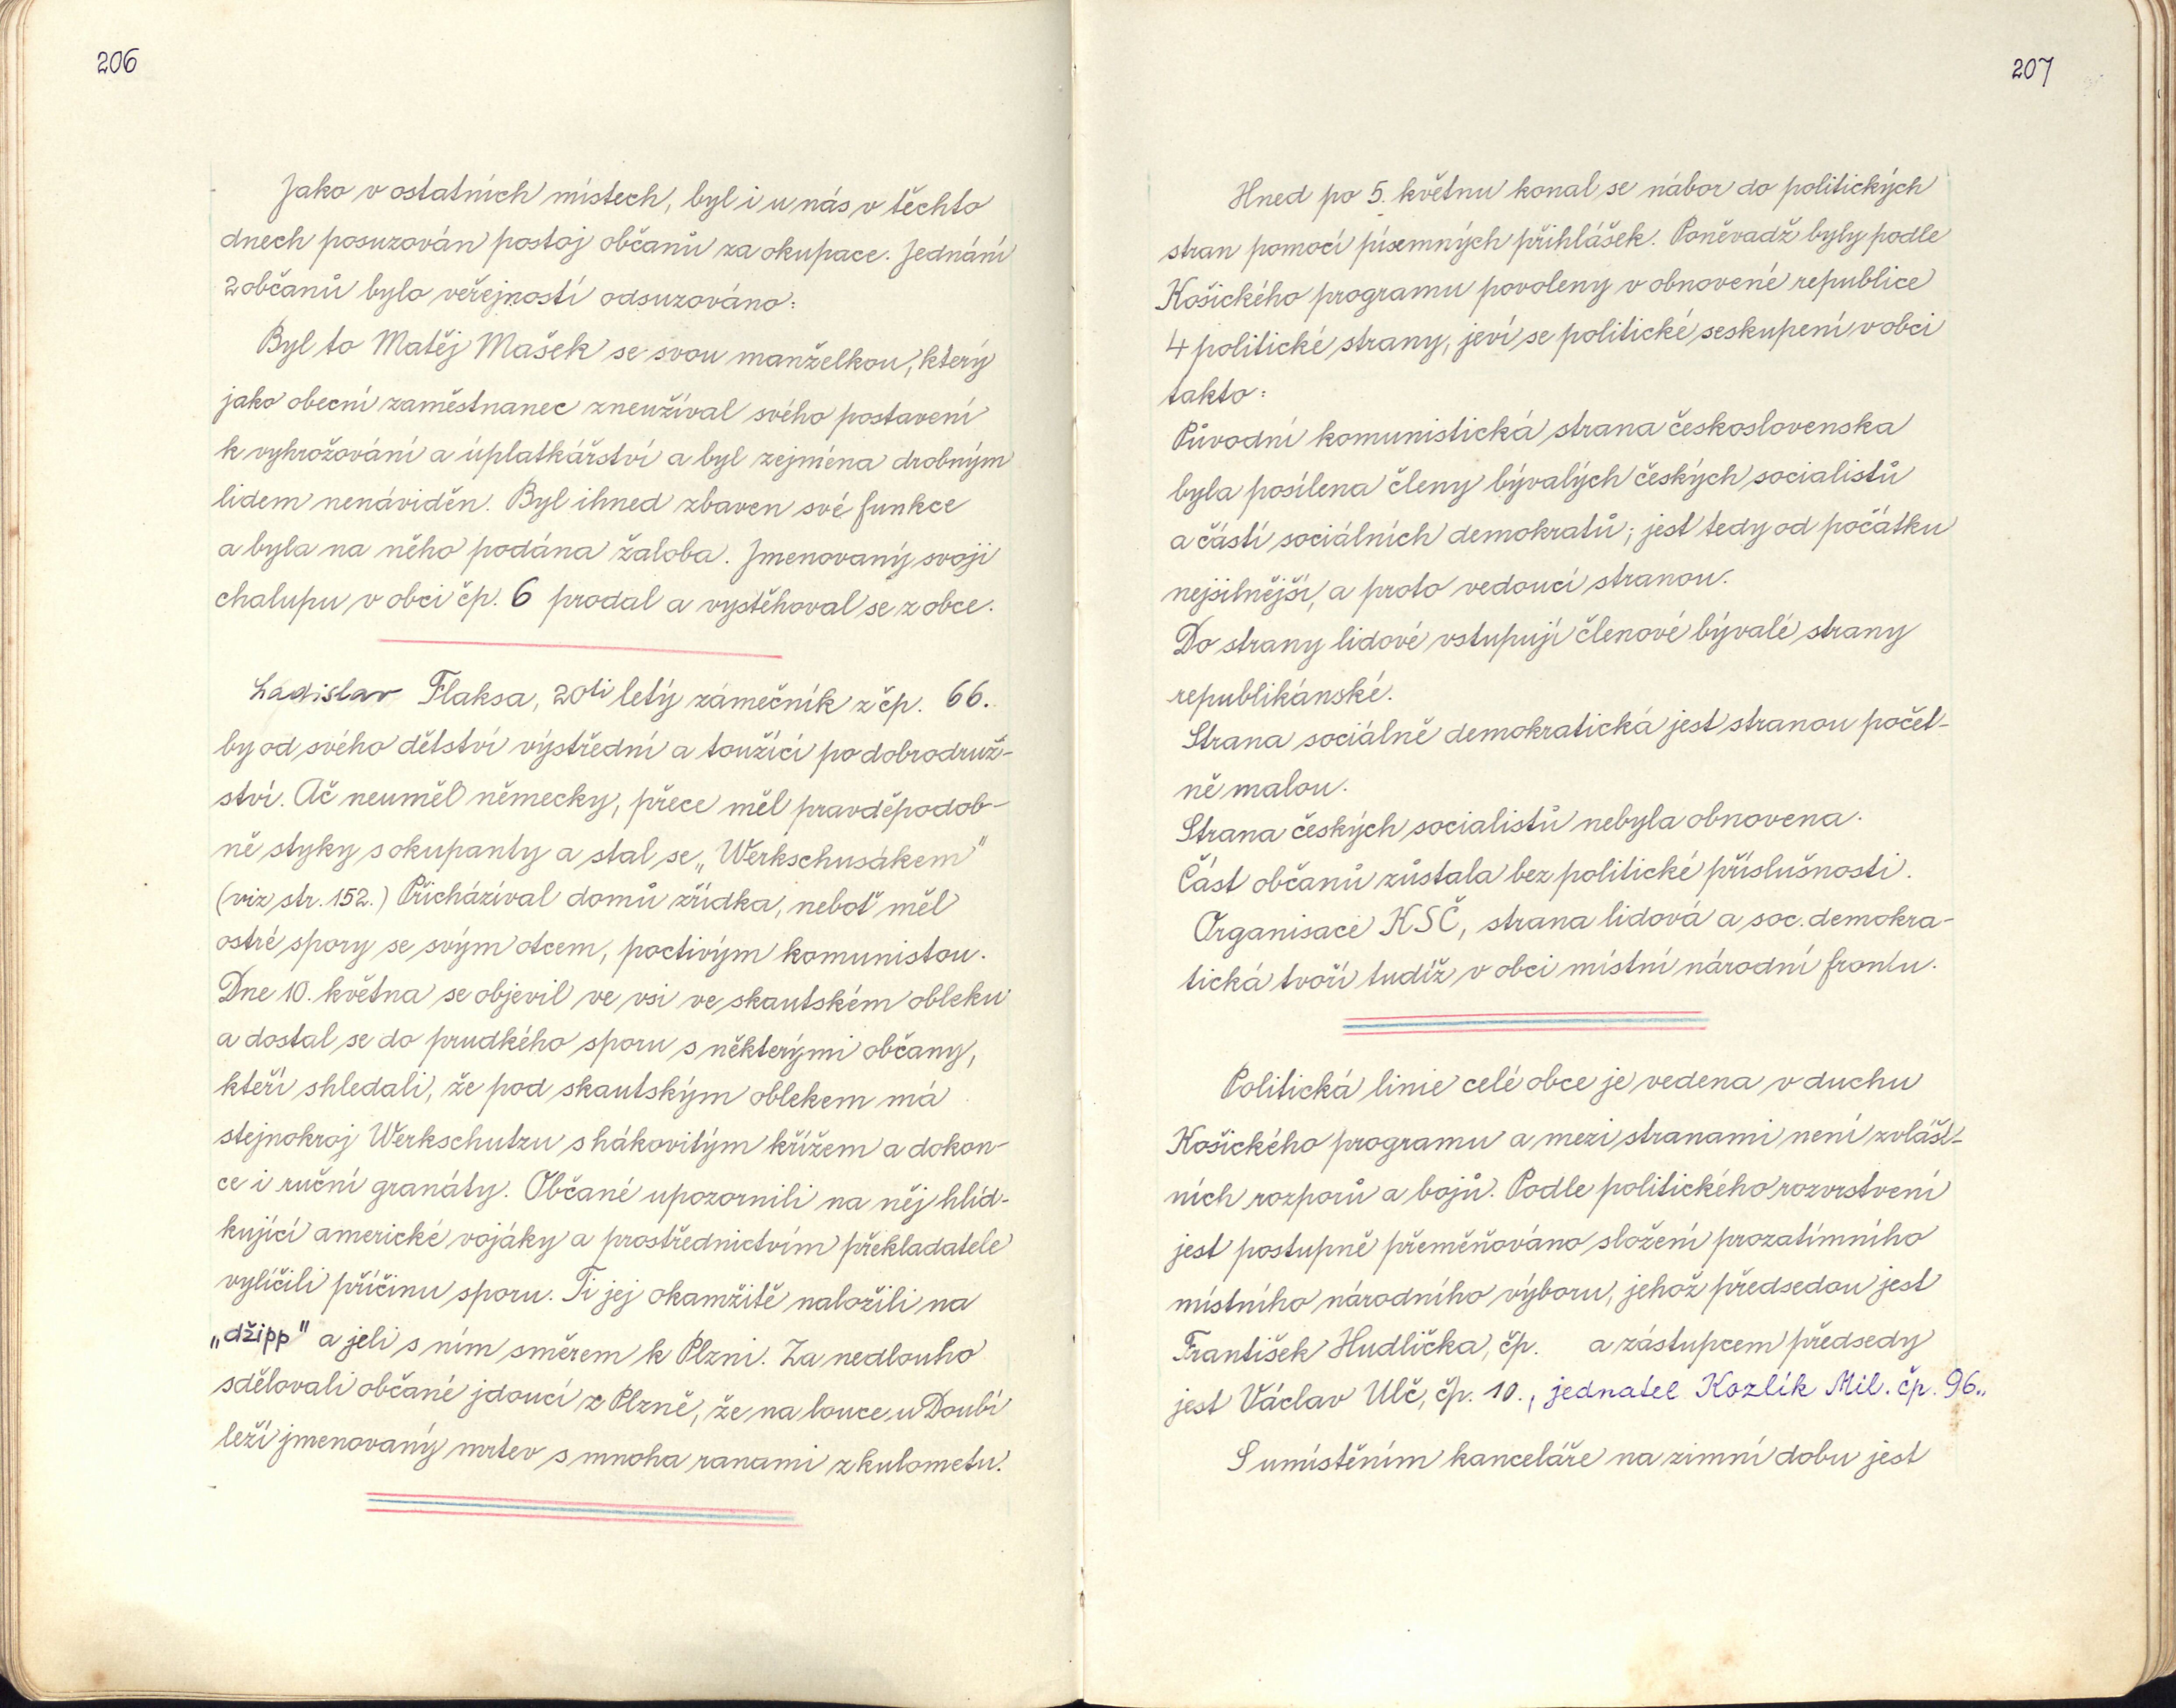 206
Jako v ostatních místech, byl i u nás v těchto
dnech posuzován postoj občanů za okupace. Jednání
2 občanů bylo veřejností odsuzováno:
Byl to Matěj Mašek se svou manželkou, který
jako obecní zaměstnanec zneužíval svého postavení
k vyhrožování a úplatkářství a byl zejména drobným
lidem nenáviděn. Byl ihned zbaven své funkce
a byla na něho podána žaloba. Jmenovaný svoji
chalupu v obci čp. 6 prodal a vystěhoval se z obce.
Ladislav Flaksa, 20ti letý zámečník z čp. 66.
by od svého dětství výstřední a toužící po dobrodruž-
ství. Ač neuměl německy, přece měl pravděpodob-
ně styky s okupanty a stal se „Werkschusákem"
(viz str. 152.) Přicházíval domů zřídka, neboť měl
ostré spory se svým otcem, poctivým komunistou.
Dne 10. května se objevil ve vsi ve skautském obleku
a dostal se do prudkého sporu s některými občany,
kteří shledali, že pod skautským oblekem má
stejnokroj Werkschutzu s hákovitým křížem a dokon-
ce i ruční granáty. Občané upozornili na něj hlíd-
kující americké vojáky a prostřednictvím překladatele
vylíčili příčinu sporu. Ti jej okamžitě naložili na
„džipp" a jeli s ním směrem k Plzni. Za nedlouho
sdělovali občané jdoucí z Plzně, že na louce u Doubí
leží jmenovaný mrtev s mnoha ranami z kulometu.
207
Hned po 5. květnu konal se nábor do politických
stran pomocí písemných přihlášek. Poněvadž byly podle
Košického programu povoleny v obnovené republice
4 politické strany, jeví se politické seskupení v obci
takto:
Původní komunistická strana československa
byla posílena členy bývalých českých socialistů
a částí sociálních demokratů; jest tedy od počátku
nejsilnější, a proto vedoucí stranou.
Do strany lidové vstupují členové bývalé strany
republikánské.
Strana sociálně demokratická jest stranou počet-
ně malou.
Strana českých socialistů nebyla obnovena.
Část občanů zůstala bez politické příslušnosti.
Organisace KSČ, strana lidová a soc. demokra-
tická tvoří tudíž v obci místní národní frontu.
Politická linie celé obce je vedena v duchu
Košického programu a mezi stranami není zvlášt-
ních rozporů a bojů. Podle politického rozvrstvení
jest postupně přeměňováno složení prozatímního
místního národního výboru, jehož předsedou jest
František Hudlička, čp. a zástupcem předsedy
jest Václav Ulč, čp. 10., jednatel Kozlík Mil. čp. 96..
S umístěním kanceláře na zimní dobu jest